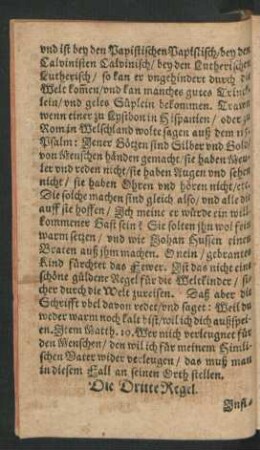 vnd ist bey den Papistischen Papistisch/ bey den
Calvinisten Calvinisch/ bey den Lutherischen
Lutherisch/ so kan er vngehindert durch die
Welt kom̃en/ vnd kan manches gutes Trinck-
lein/ vnd geles Süplein bekommen. Trawn
wenn einer zu Lyssibon in Hispanien/ oder zu
Rom in Welschland wolte sagen auß dem 115.
Psalm: Jener Götzen sind Silber vnd Gold/
von Menschen händen gemacht/ sie haben Meu-
ler vnd reden nicht/ sie haben Augen vnd sehen
nicht/ sie haben Ohren vnd hören nicht/ etc.
Die solche machen sind gleich also/ vnd alle die
auff sie hoffen/ Ich meine er würde ein will-
kommener Gast sein! Sie solten jhn wol fein
warm setzen/ vnd wie Johan Hussen einen
Braten auß jhm machen. O nein/ gebrantes
Kind fürchtet das Fewer. Ist das nicht eine
schöne güldene Regel für die Weltkinder/ si-
cher durch die Welt zureisen. Daß aber die
Schrifft vbel davon redet/ vnd saget: Weil du
weder warm noch kalt bist/ wil ich dich außspei-
en. Item Matth. 10. Wer mich verleugnet für
den Menschen/ den wil ich für meinem Himli-
schen Vater wider verleugen/ das muß man
in diesem Fall an seinen Orth stellen.
Die Dritte Regel.